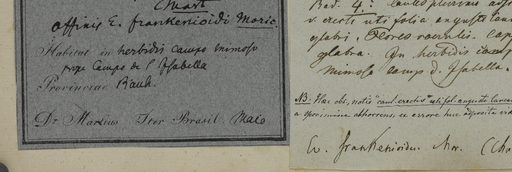 Mart
affinis E. frankenioidi Moric.
Habitat in herbidis campo mimoso
prope Campo de S Ysabella
Provinciae Piauh.
Dr Martius Iter Brasil Maio
Bad. 4. caules plurimi
v. erecti uti folia anguste
glabri, Flores
glabra. In herbidis campo
mimoso campo d. Ysabella.
NB: Hac obs. notis "caul. erectis" uti fol. anguste lanceo
a specimine abhorrens, ex errore huc adposita
E. frankenioides Mor.